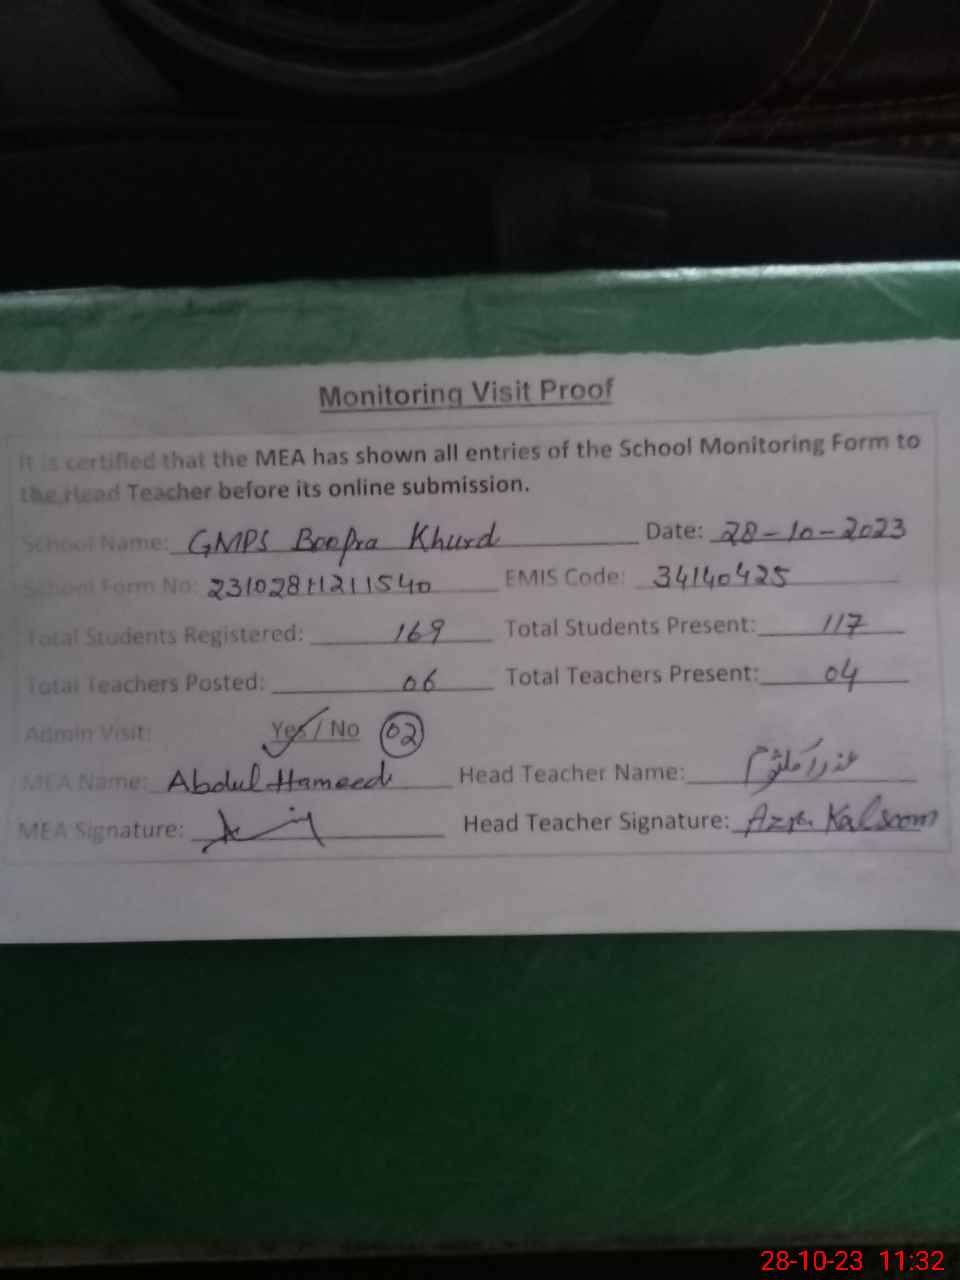 Monitoring Visit Proof
It is certified that the MEA has shown all entries of the School Monitoring Form to
the Head Teacher before its online submission.
School Name: GMPS Boopra Khurd Date: 28-10-2023
School Form No: 23102811211540 EMIS Code: 34140425
Total Students Registered: 169 Total Students Present: 117
Total Teachers Posted: 06 Total Teachers Present: 04
Admin Visit: Yes / No 02
MEA Name: Abdul Hameed Head Teacher Name: عذرا کلثوم
MEA Signature: Head Teacher Signature: Azra Kalsoom
28-10-23 11:32